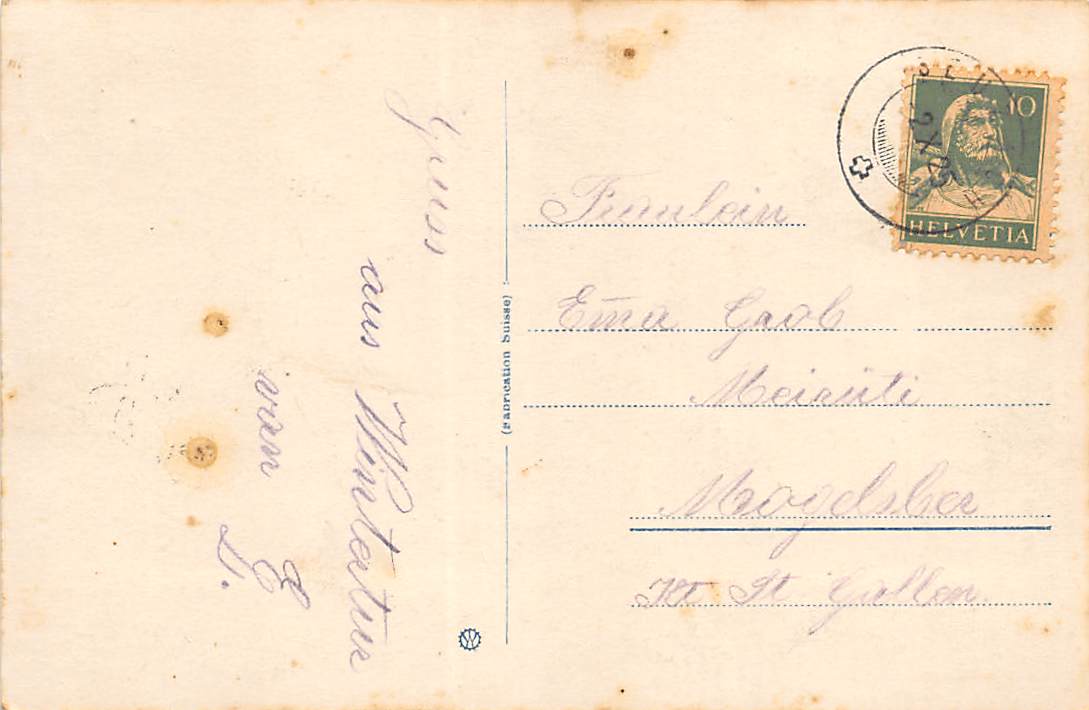 Gruss
aus Wintertur
von
E
L.
(Fabrication Suisse)
Fräulein
Ema Graob
Meirüti
Mogelsber
Kt St Gallen
10
2 X 25
HELVETIA